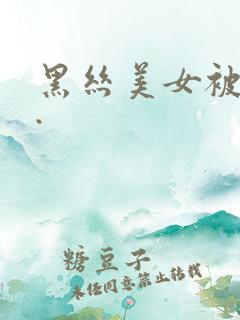 黑丝美女被
.
糖豆子
未经同意禁止转载